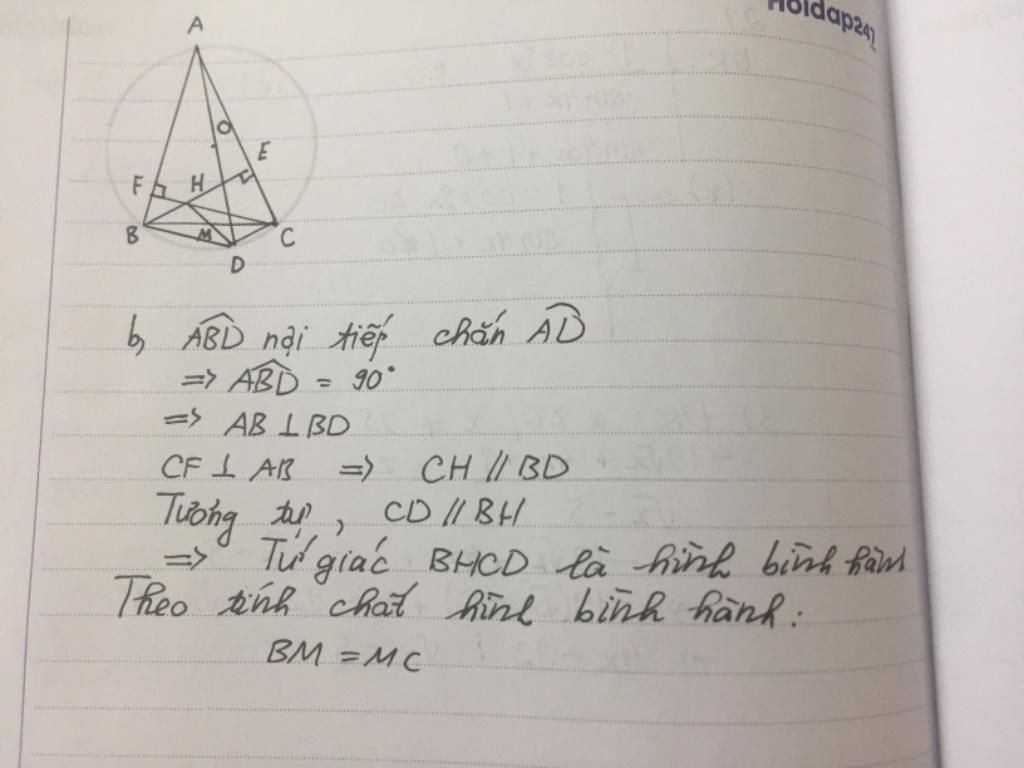 Hoidap247
A
O
E
F
H
B
M
C
D
b, ABD nội tiếp chắn AD
=> ABD = 90°
=> AB ⊥ BD
CF ⊥ AB => CH // BD
Tương tự, CD // BH
=> Tứ giác BHCD là hình bình hành
Theo tính chất hình bình hành:
BM = MC